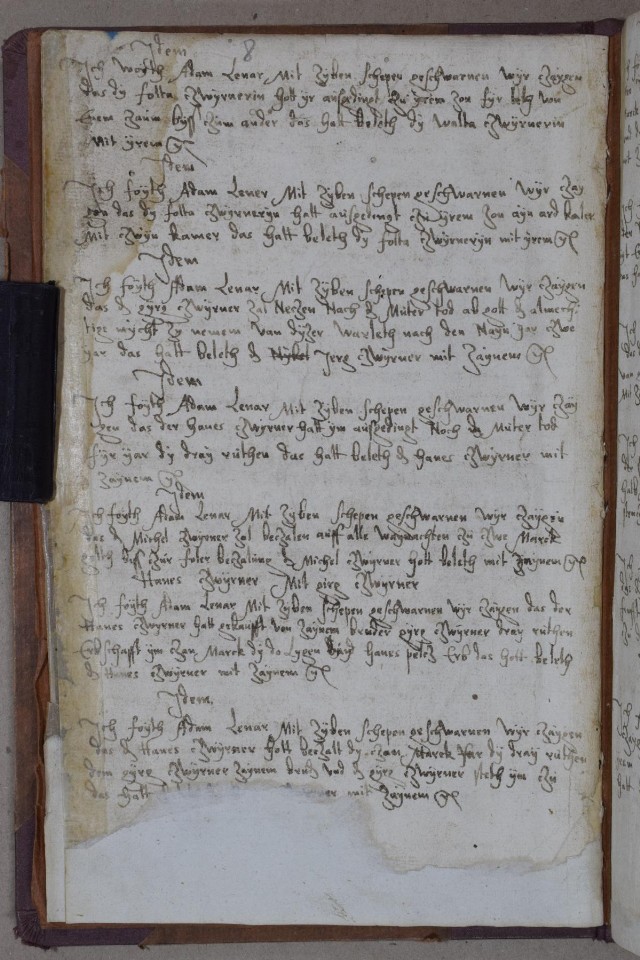 Idem 8
Ich voyth Adam Lenar Mit Zyben schepen geschwarnen wyr Zaygen
das dy folta Czwyrnerin hott yr ausgedingt zu yrem Zon fyr beth von
einem Zaum byss Czum ander das hatt beleth dy walta Czwyrnerin
Mit yrem
Idem
Ich foyth Adam Lener Mit Zyben schepen geschwarnen wyr Zay
gen das dy folta Czwyrneryn hatt ausgedingt Czu yrem Zon ayn ard kaler
Mit Czwyn kamer das hatt beleth dy folta Czwyrneryn mit yrem
Idem
Ich foyth Adam Lenar Mit Zyben schepen geschwarnen wyr Czaygen
das d gyrg Czwyrner Zal Neczen Nach d Muter tod ab gott d almech
tige nycht Zy nemem van dyzer warleth nach den Nayn yar Czwe
yar das hatt beleth d Jerg Czwyrner mit Zaynem
Idem
Ich foyth Adam Lenar Mit Zyben schepen geschwarnen wyr Zay
gen das der hanes Czwyrner hatt ym aussgedingt Noch d Muter tod
fyr yar dy dray ruthen das hatt beleth d hanes Czwyrner mit
Zaynem
Idem
Ich foyth Adam Lenar Mit Zyben schepen geschwarnen wyr Zaygen
das d Michel Zwyrner Zal beczalen auff alle waynachten Zu Zwe Marck
byss Czur foler beczaling d Michel Czwyrner hott beleth mit Zaynem
Hanes Czwyrner Mit girg Czwyrner
Ich foyth Adam Lenar Mit Zyben schepen geschwarnen wyr Zaygen das der
Hanes Czwyrner hatt gekaufft von Zaynem bruder gyrg Czwyrner dray ruthen
Erbschafft ym Czan Marck dy do Lygen hanes pelcz Erb das hott beleth
d Hanes Czwyrner mit Zaynem
Idem
Ich foyth Adam Lenar Mit Zyben schepen geschwarnen wyr Zaygen
das d Hanes Czwyrner hott beczalt dy Czan Marck far dy dray ruthen
dem gyrg Czwyrner Zaynem brud vnd d gyrg Czwyrner steth ym Czu
das hatt er mit Zaynem